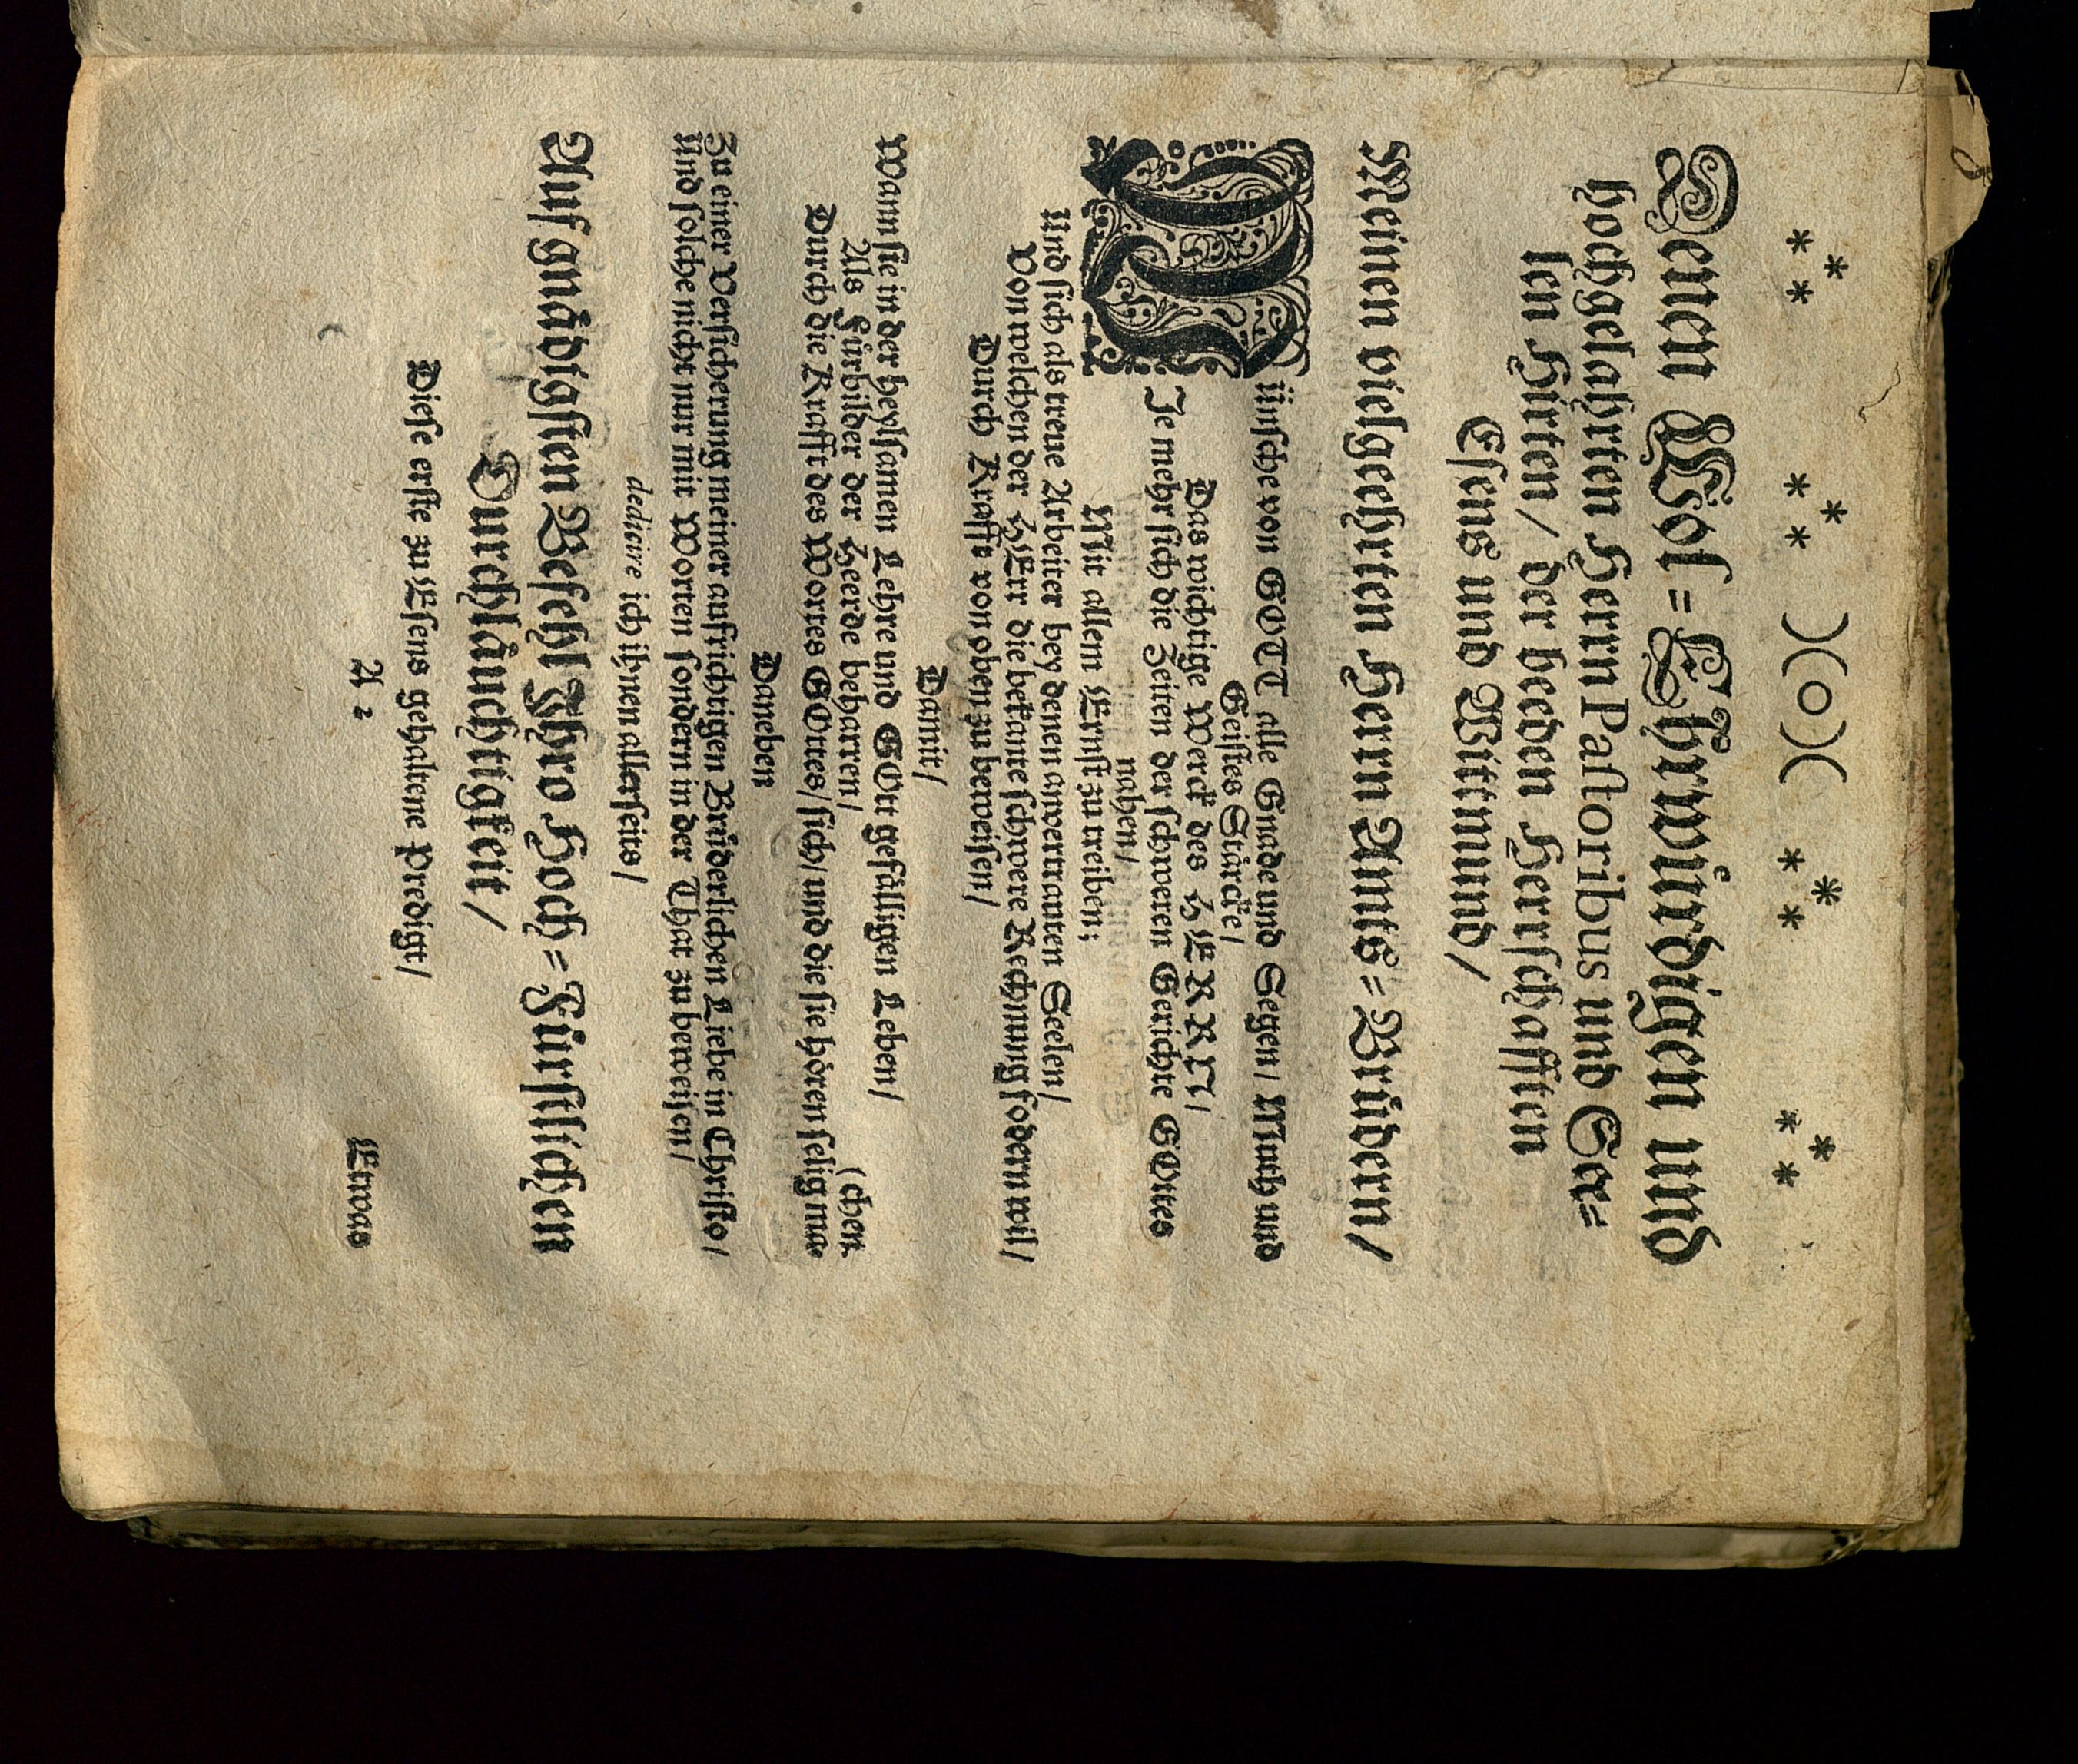 * * * * * * )(o)( * * * * * *
Denen Wol=Ehrwürdigen und
hochgelahrten Herrn Paſtoribus und See=
len Hirten / der beeden Herrſchafften
Eſens und Wittmund /
Meinen vielgeehrten Herrn Amts=Brüdern /
Wünſche von GOTT alle Gnade und Segen / Muth und
Geiſtes Stärcke /
Das wichtige Werck des HERRN /
Je mehr ſich die Zeiten der ſchweren Gerichte GOttes
nahen /
Mit allem Ernſt zu treiben;
Und ſich als treue Arbeiter bey denen anvertrauten Seelen /
Von welchen der HErr die bekante ſchwere Rechnung fodern wil /
Durch Krafft von oben zu beweiſen /
Damit /
Wann ſie in der heylſamen Lehre und GOtt gefälligen Leben /
Als Fürbilder der Heerde beharren / (chen
Durch die Krafft des Wortes GOttes / ſich / und die ſie hören ſelig ma=
Daneben
Zu einer Verſicherung meiner aufrichtigen Brüderlichen Liebe in Chriſto /
Und ſolche nicht nur mit Worten ſondern in der That zu beweiſen /
dedicire ich ihnen allerſeits /
Auf gnädigſten Befehl Ihro Hoch=Fürſtlichen
Durchläuchtigkeit /
Dieſe erſte zu Eſens gehaltene Predigt /
A 2 Etwas